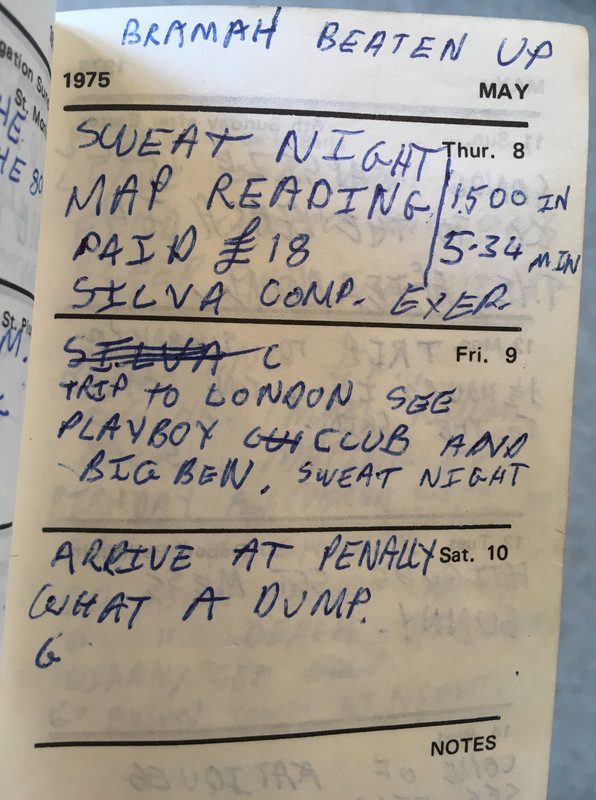 BRAMAH BEATEN UP
1975 MAY
SWEAT NIGHT Thur. 8
MAP READING 1500 IN
PAID £18 5.34 MIN
SILVA COMP. EXER.
SILVA C Fri. 9
TRIP TO LONDON SEE
PLAYBOY CLUB AND
BIG BEN, SWEAT NIGHT
ARRIVE AT PENALLY Sat. 10
WHAT A DUMP.
G
NOTES